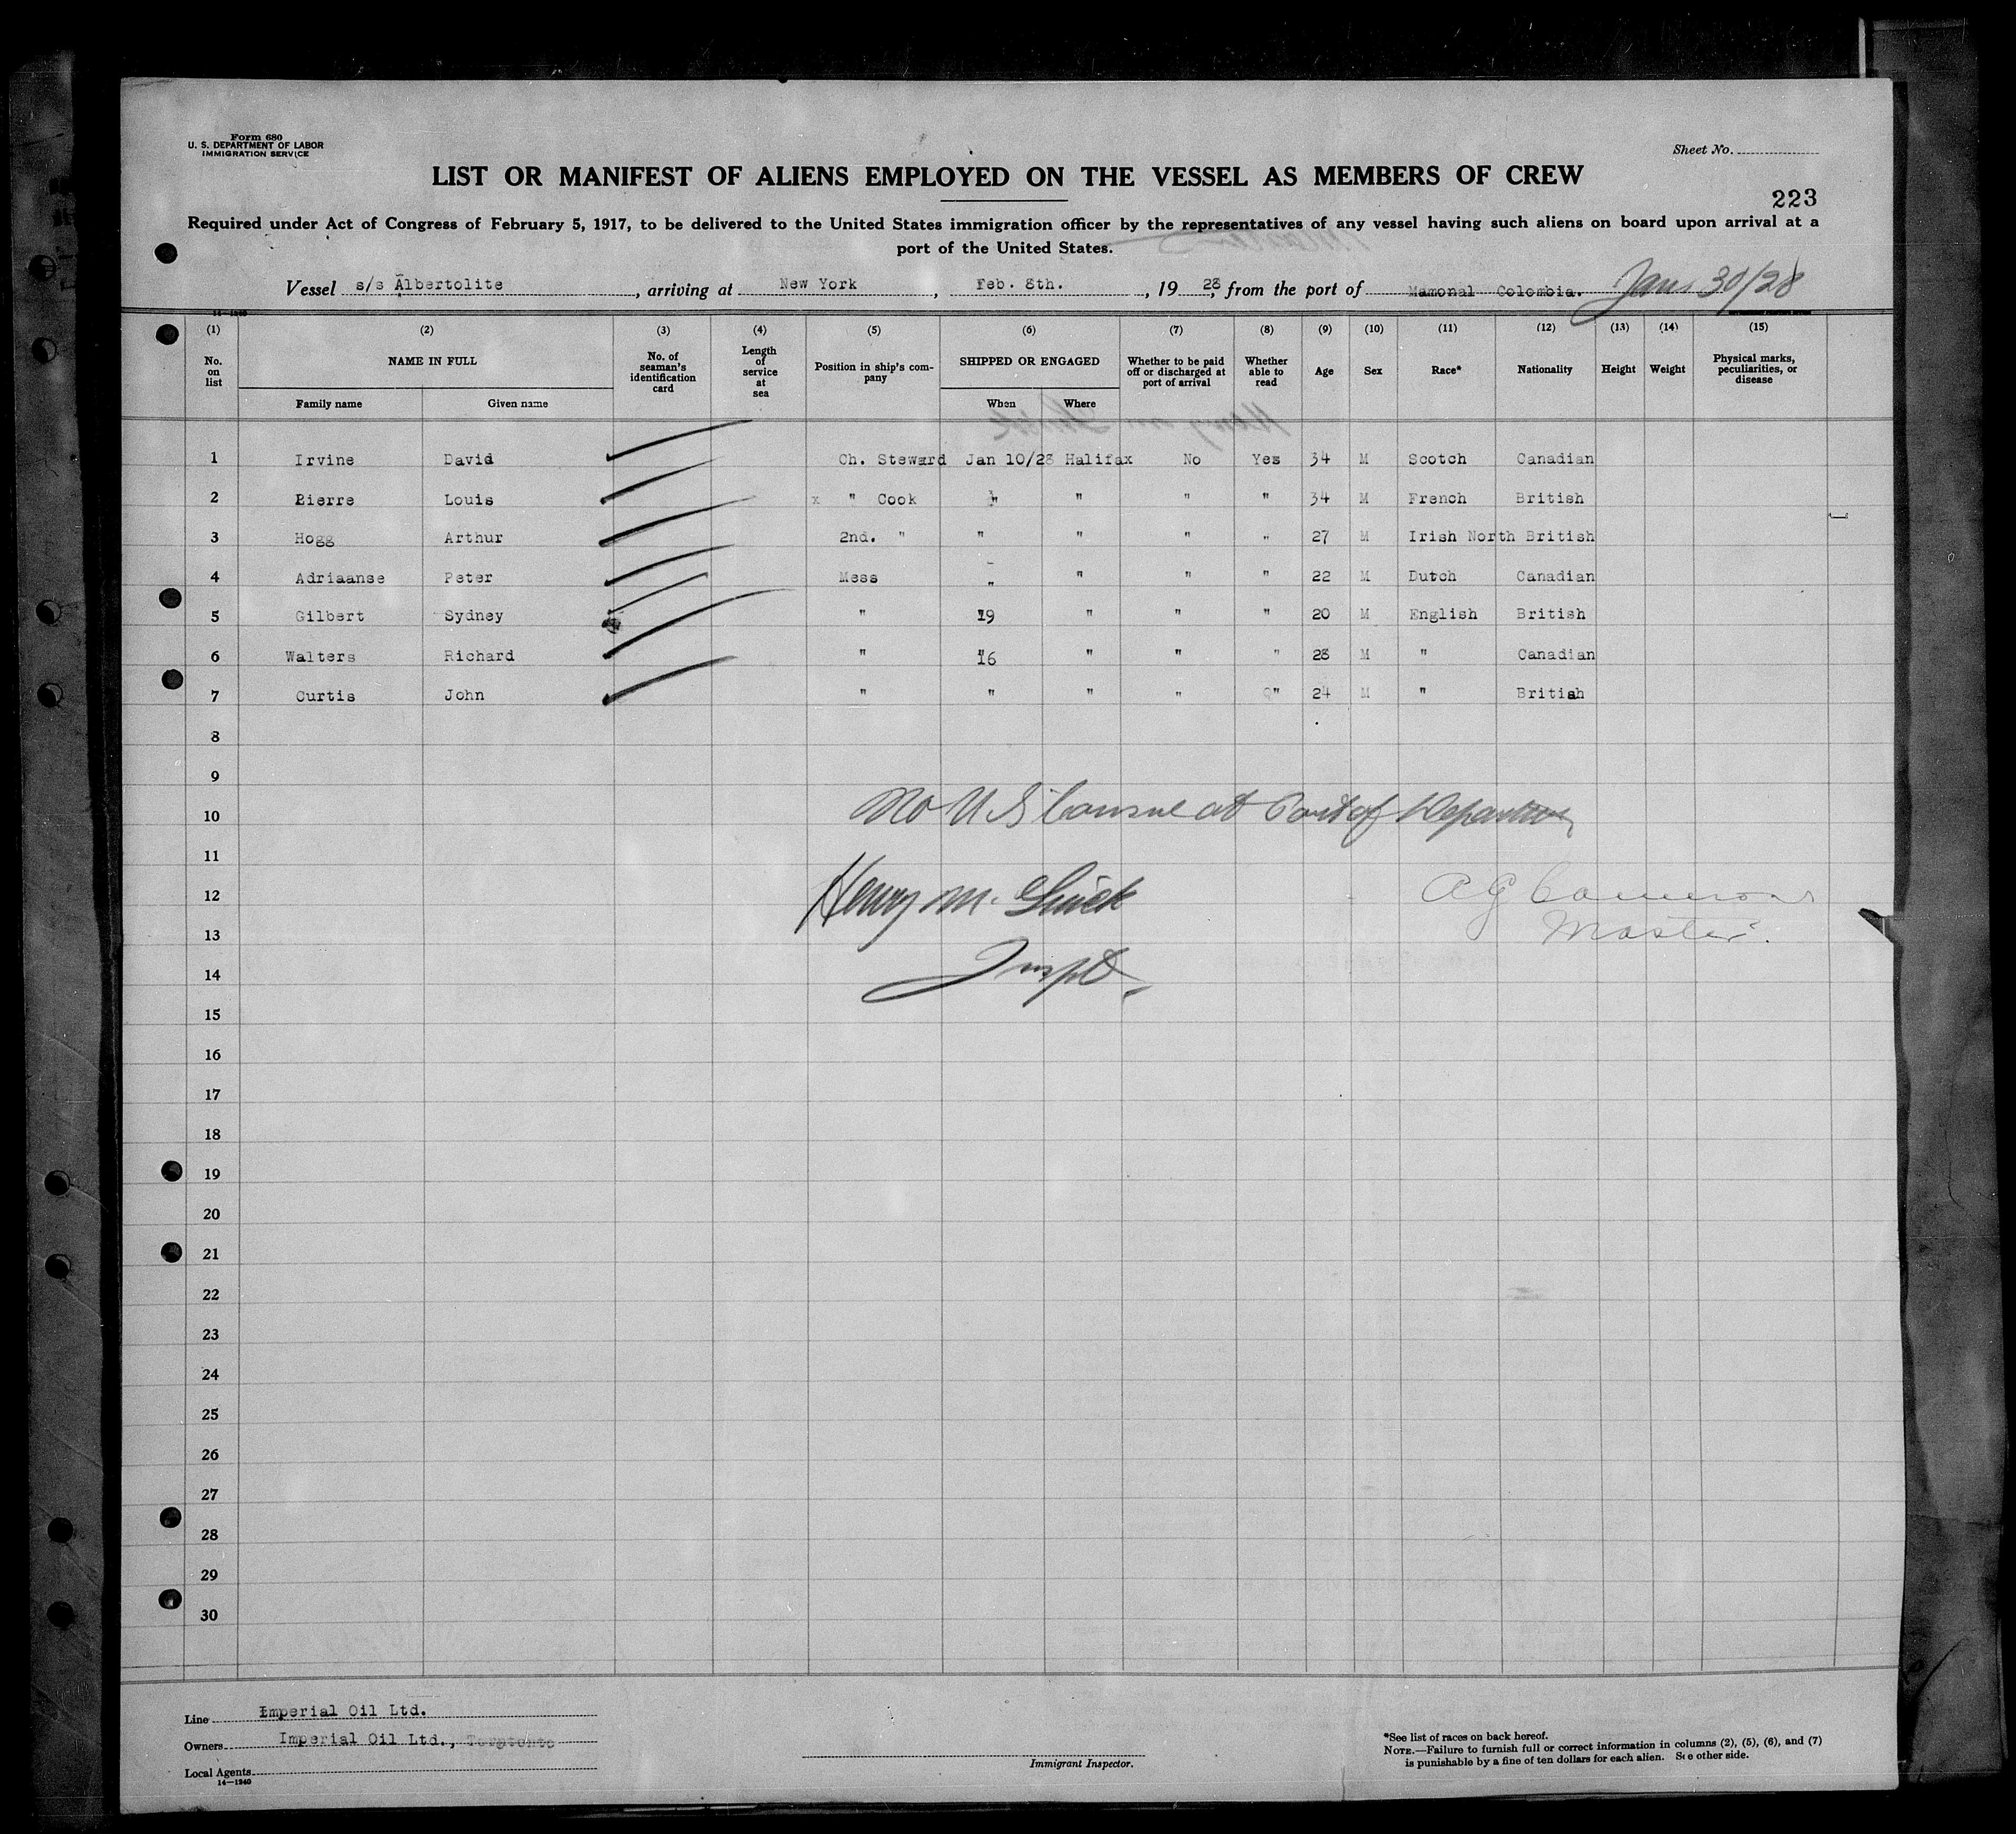 Form 680
U. S. DEPARTMENT OF LABOR
IMMIGRATION SERVICE
Sheet No.
LIST OR MANIFEST OF ALIENS EMPLOYED ON THE VESSEL AS MEMBERS OF CREW
223
Required under Act of Congress of February 5, 1917, to be delivered to the United States immigration officer by the representatives of any vessel having such aliens on board upon arrival at a
port of the United States.
Vessel s/s Albertolite, arriving at New York, Feb. 8th., 1928, from the port of Mamonal Colombia. Jan 30/28
(1) (2) (3) (4) (5) (6) (7) (8) (9) (10) (11) (12) (13) (14) (15)
No. on list NAME IN FULL No. of seaman's identification card Length of service at sea Position in ship's company SHIPPED OR ENGAGED Whether to be paid off or discharged at port of arrival Whether able to read Age Sex Race* Nationality Height Weight Physical marks, peculiarities, or disease
Family name Given name When Where
1 Irvine David Ch. Steward Jan 10/28 Halifax No Yes 34 M Scotch Canadian
2 Pierre Louis x " Cook " " " " 34 M French British
3 Hogg Arthur 2nd. " " " " " 27 M Irish North British
4 Adriaanse Peter Mess " " " " 22 M Dutch Canadian
5 Gilbert Sydney " 19 " " " 20 M English British
6 Walters Richard " 16 " " " 28 M " Canadian
7 Curtis John " " " " " 24 M " British
8
9
10 No U S Consul at Port of Departure
11
12 Henry M. A G Cameron
13 Master.
14 Inspt.
15
16
17
18
19
20
21
22
23
24
25
26
27
28
29
30
Line Imperial Oil Ltd.
Owners Imperial Oil Ltd.,
Local Agents
14—1240
Immigrant Inspector.
*See list of races on back hereof.
NOTE.—Failure to furnish full or correct information in columns (2), (5), (6), and (7)
is punishable by a fine of ten dollars for each alien. See other side.